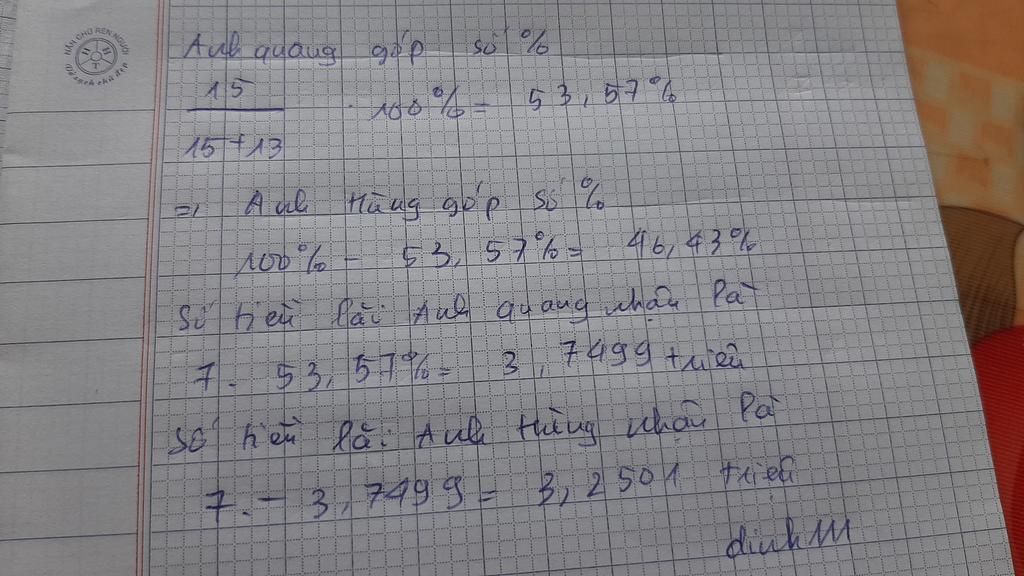 NÂN CHỮ RÈN NGƯỜI
Anh quang góp số %
15
15+13
. 100% = 53,57%
=> Anh Hùng góp số %
100% - 53,57% = 46,43%
Số tiền lãi Anh quang nhận là
7. 53,57% = 3,7499 triệu
Số tiền lãi Anh Hùng nhận là
7. - 3,7499 = 3,2501 triệu